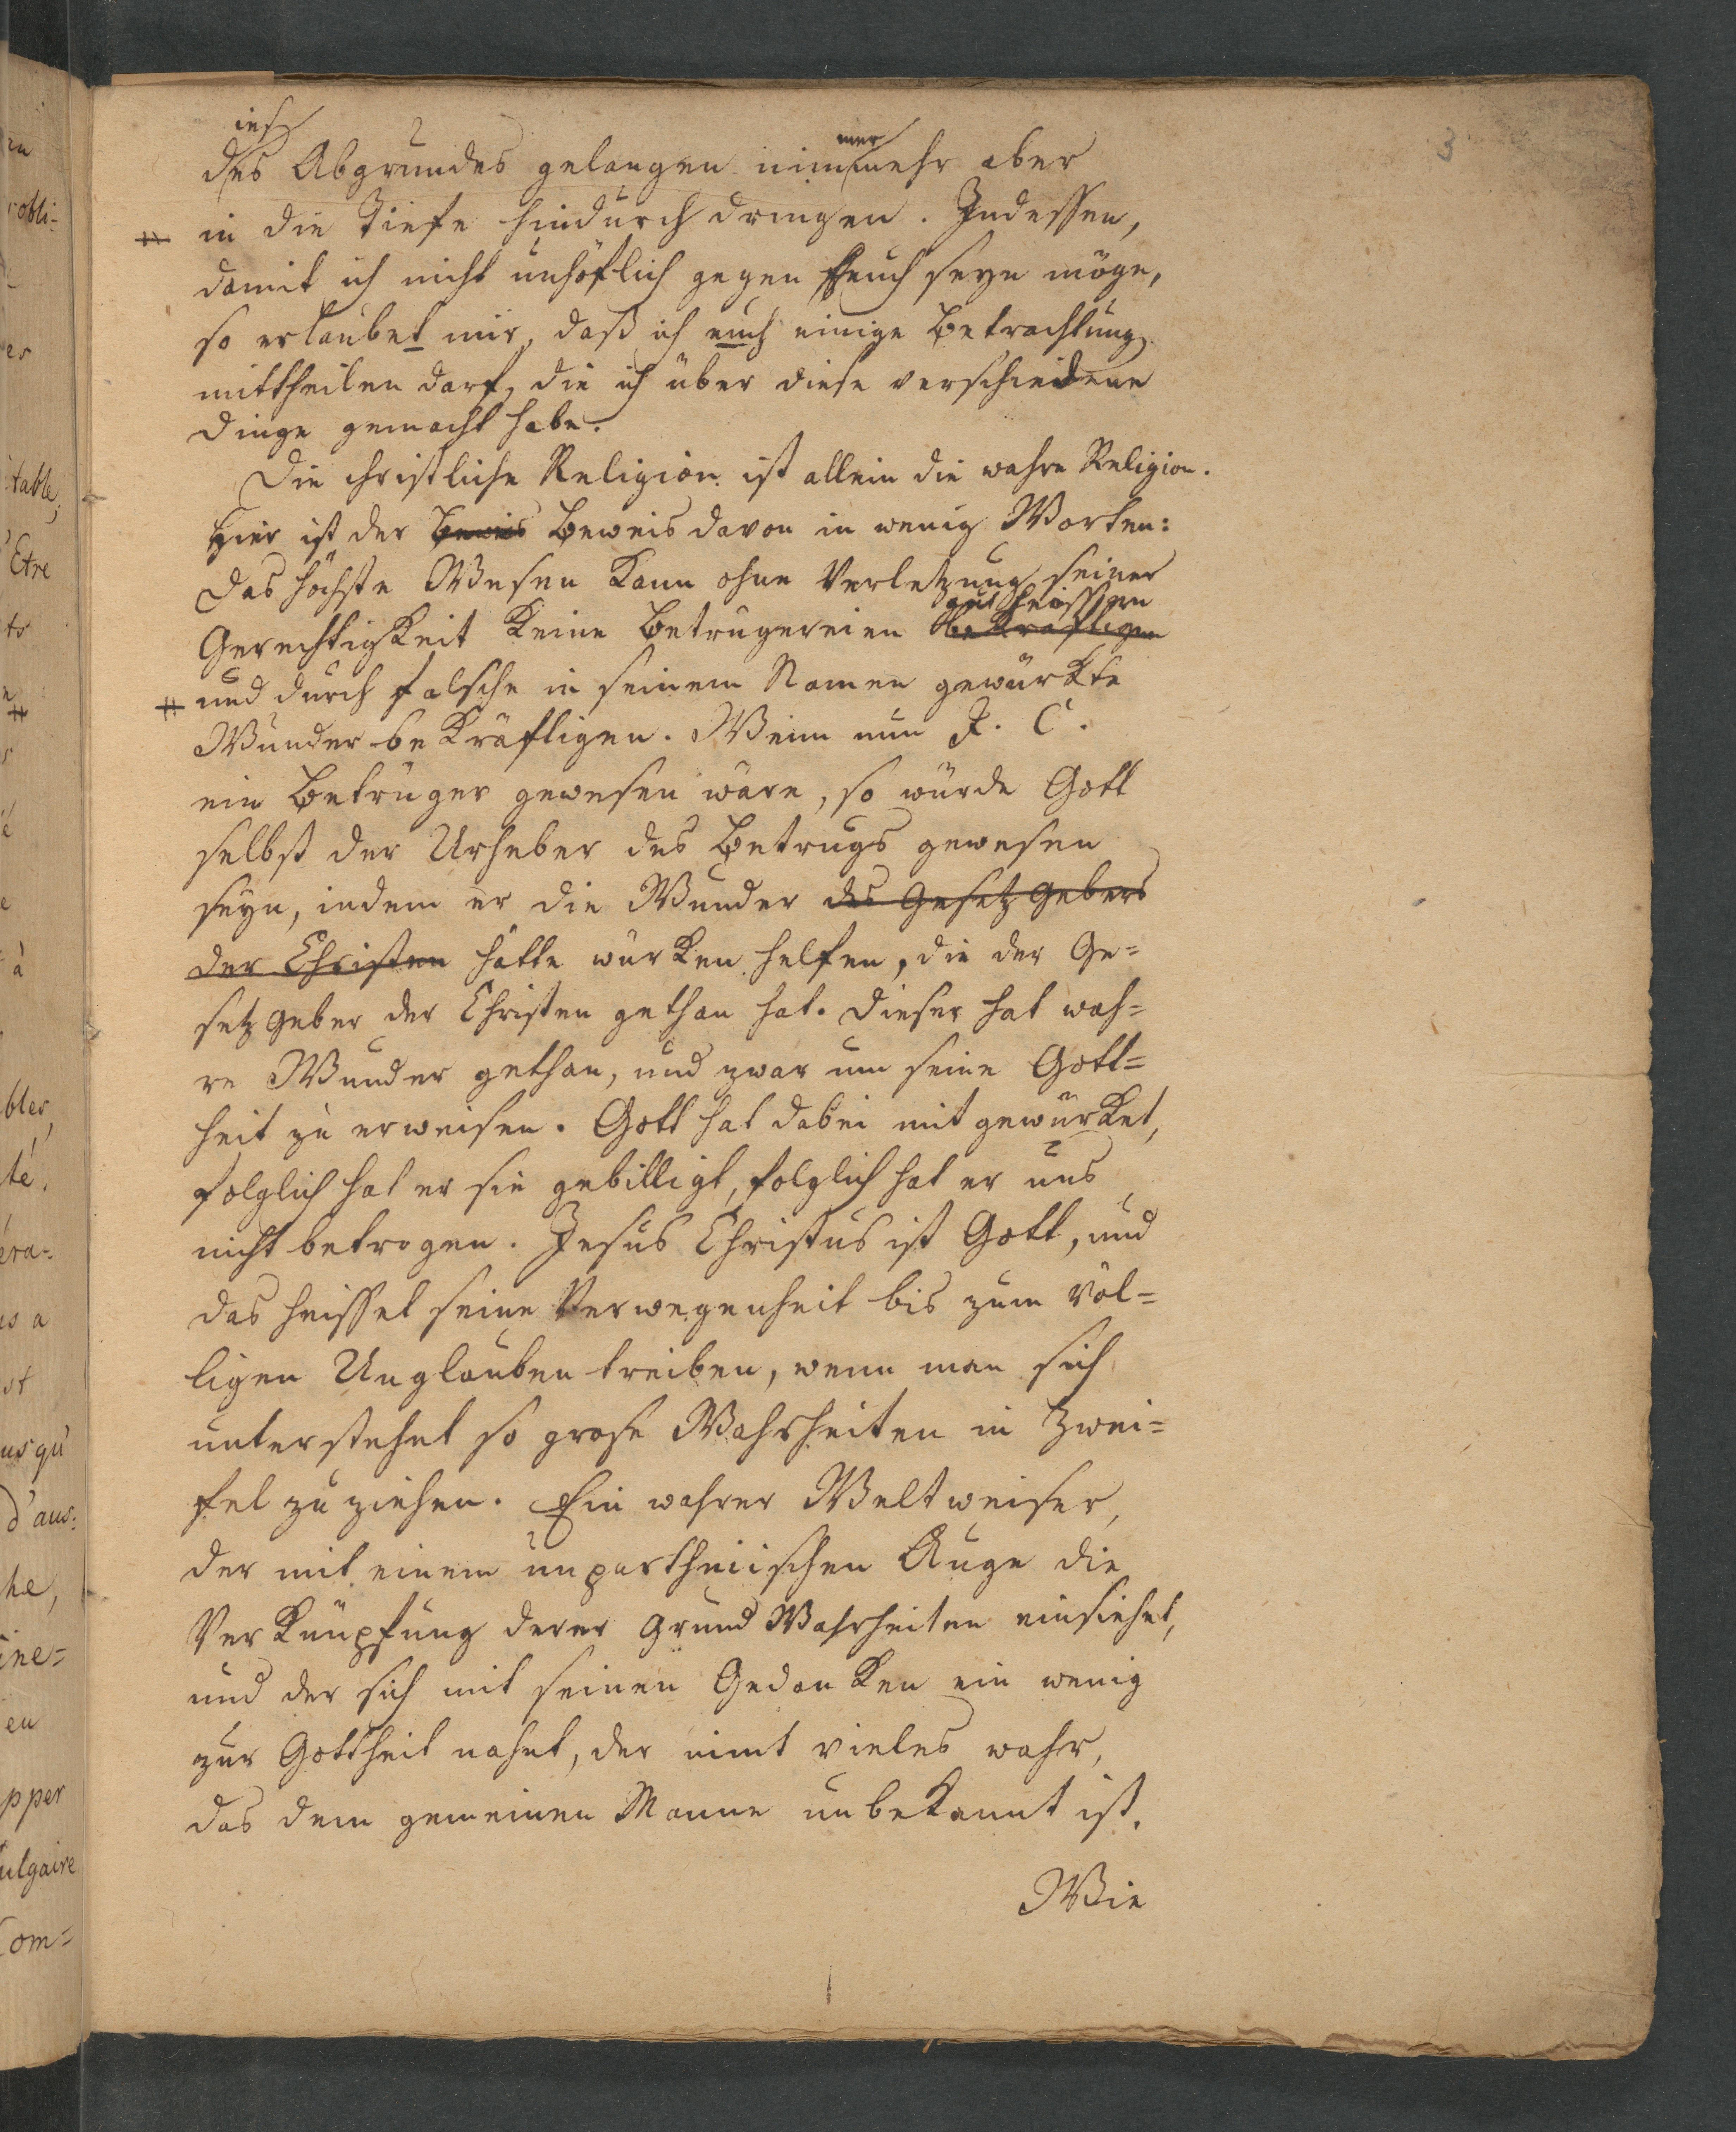 3
des Abgrundes gelangen nimmermehr aber
in die Tiefe hindurch dringen. Indessen,
damit ich nicht unhöflich gegen euch seyn möge,
so erlaubet mir, daß ich euch einige Betrachtung
mittheilen darf, die ich über diese verschiedene
Dinge gemacht habe.
Die christliche Religion ist allein die wahre Religion.
Hier ist der Beweis Beweis davon in wenig Worten:
Das höchste Wesen kann ohne Verletzung seiner
gut heissen
Gerechtigkeit keine Betrugereien bekräftigen
und durch falsche in seinem Namen gewürkte
Wunder bekräftigen. Wenn nun J. C.
ein Betrüger gewesen wäre, so würde Gott
selbst der Urheber des Betrugs gewesen
seyn, indem er die Wunder des Gesetzgebers
der Christen hätte würken helfen, die der Ge=
setzgeber der Christen gethan hat. Dieser hat wah=
re Wunder gethan, und zwar um seine Gott=
heit zu erweisen. Gott hat dabei mit gewürket,
folglich hat er sie gebilligt, folglich hat er uns
nicht betrogen. Jesus Christus ist Gott, und
das heisset seine Verwegenheit bis zum völ=
ligen Unglauben treiben, wenn man sich
unterstehet so grose Wahrheiten in Zwei=
fel zu ziehen. Ein wahrer Weltweiser,
der mit einem unpartheiischen Auge die
Verknüpfung derer Grund Wahrheiten einsiehet,
und der sich mit seinen Gedanken ein wenig
zur Gottheit nahet, der nimt vieles wahr,
das dem gemeinen Manne unbekannt ist.
Wie